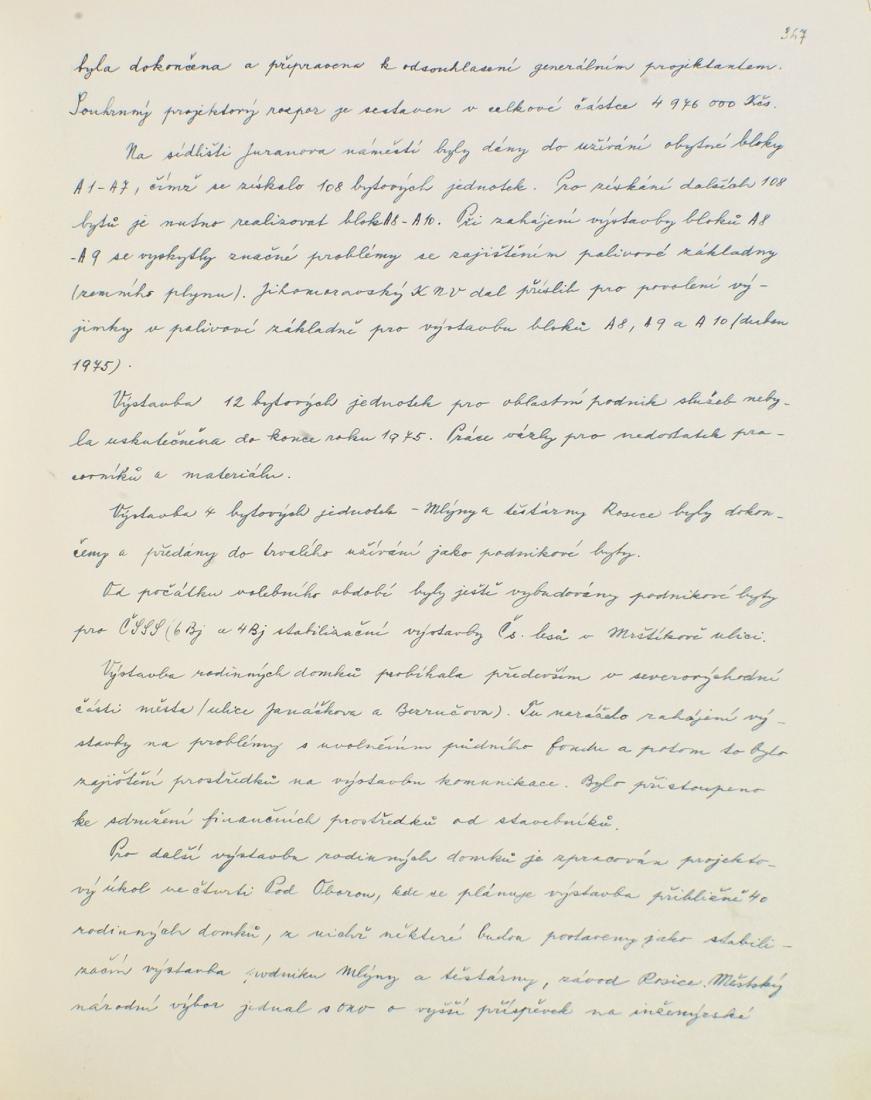 347
byla dokončena a připravena k odsouhlasení generálním projektantem.
Souhrnný projektový rozpor je sestaven v celkové částce 4 976 000 Kčs.
Na sídlišti Juranova náměstí byly dány do užívání obytné bloky
A1-A7, čímž se získalo 108 bytových jednotek. Pro získání dalších 108
bytů je nutno realizovat blok A8-A10. Při zahájení výstavby bloků A8
-A9 se vyskytly značné problémy se zajištěním palivové základny
(zemního plynu). Jihomoravský KNV dal příslib pro povolení vý-
jimky v palivové základně pro výstavbu bloků A8, A9 a A10 (duben
1975).
Výstavba 12 bytových jednotek pro oblastní podnik služeb neby-
la uskutečněna do konce roku 1975. Práce vázly pro nedostatek pra-
covníků a materiálu.
Výstavba 4 bytových jednotek - Mlýny a těstárny Rosice byly dokon-
čeny a předány do trvalého užívání jako podnikové byty.
Od počátku volebního období byly ještě vybudovány podnikové byty
pro ČSSS (6 Bj a 4 Bj stabilizační výstavby Čs. lesů v Mrštíkově ulici.
Výstavba rodinných domků probíhala především v severovýchodní
části města (ulice Janáčkova a Bezručova). Tu naráželo zahájení vý-
stavby na problémy s uvolněním půdního fondu a potom to bylo
zajištění prostředků na výstavbu komunikace. Bylo přistoupeno
ke sdružení finančních prostředků od stavebníků.
Pro další výstavbu rodinných domků je zpracován projekto-
vý úkol ve čtvrti Pod Oborou, kde se plánuje výstavba přibližně 40
rodinných domků, z nichž některé budou postaveny jako stabili-
začni výstavba podniku Mlýny a těstárny, závod Rosice. Městský
národní výbor jednal s ONV o vyšší příspěvek na inženýrské